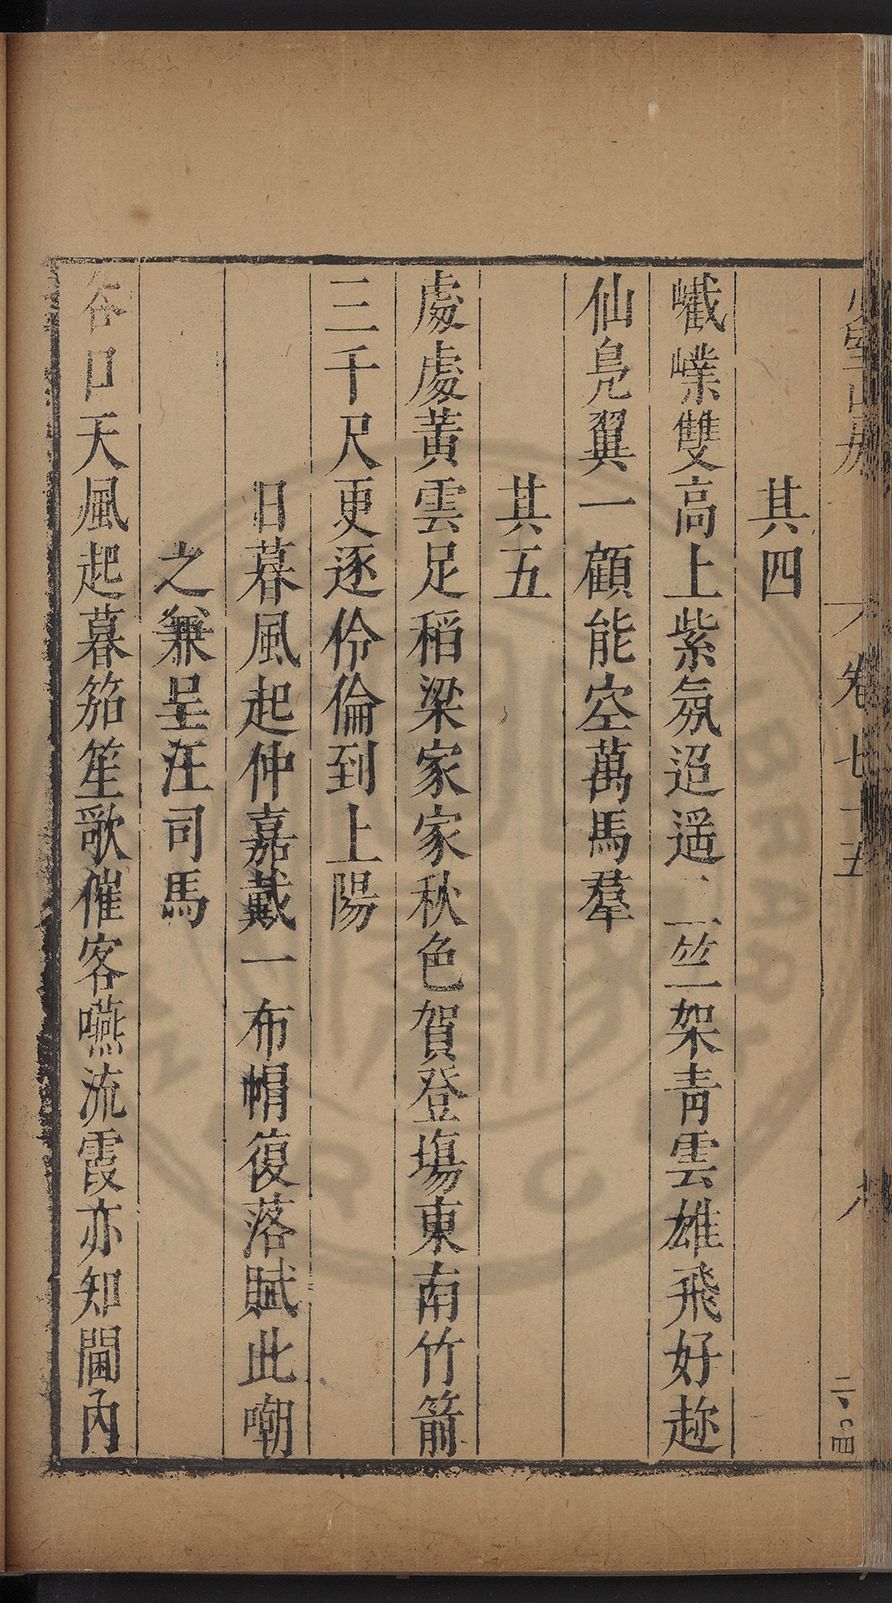 少室山房
卷七十五
八
二、四
其四
巀嶪雙高上紫氛迢遥二竺架青雲雄飛好趂
仙鳧翼一顧能空萬馬羣
其五
處處黄雲足稻粱家家秋色賀登塲東南竹箭
三千尺更逐伶倫到上陽
日暮風起仲嘉戴一布帽復落賦此嘲
之兼呈汪司馬
谷口天風起暮笳笙歌催客嚥流霞亦知閫內